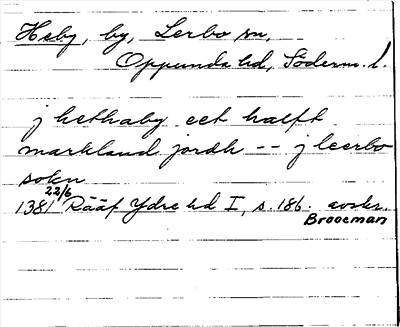 Heby, by, Lerbo sn,
Oppunda hd, Söderm. l.
j hethaby eet halft
markland jordh -- j leerbo
sokn
1381 22/6 Rääf Ydre hd I, s. 186. avskr.
Brooeman